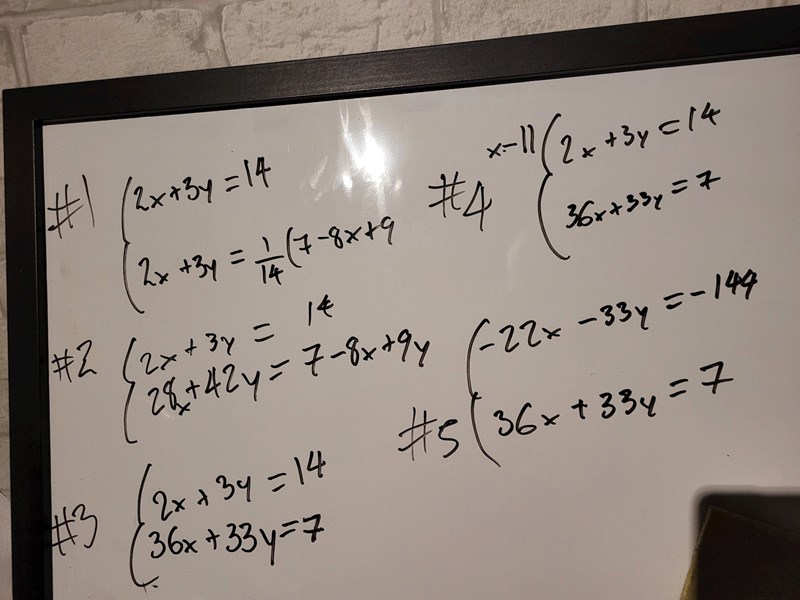 #1
2x+3y=14
2x+3y=1/14(7-8x+9
#2
2x+3y= 14
28x+42y=7-8x+9y
#3
2x+3y=14
36x+33y=7
#4
x-11
2x+3y=14
36x+33y=7
#5
-22x-33y=-144
36x+33y=7